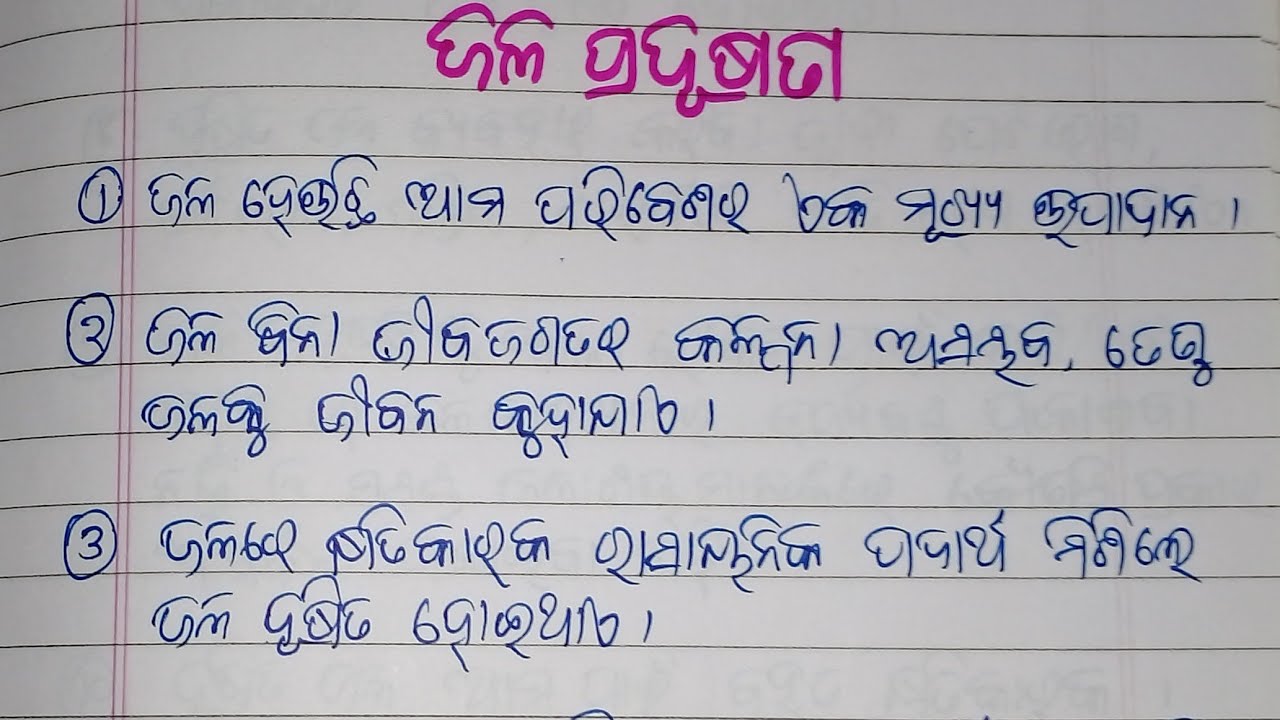 ଜଳ ପ୍ରଦୂଷଣ
① ଜଳ ହେଉଛି ଆମ ପରିବେଶର ଏକ ମୂଖ୍ୟ ଉପାଦାନ ।
② ଜଳ ବିନା ଜୀବଜଗତର କଳ୍ପନା ଅସମ୍ଭବ, ତେଣୁ
ଜଳକୁ ଜୀବନ କୁହାଯାଏ ।
③ ଜଳରେ କ୍ଷତିକାରକ ରାସାୟନିକ ପଦାର୍ଥ ମିଶିଲେ
ଜଳ ଦୂଷିତ ହୋଇଥାଏ ।